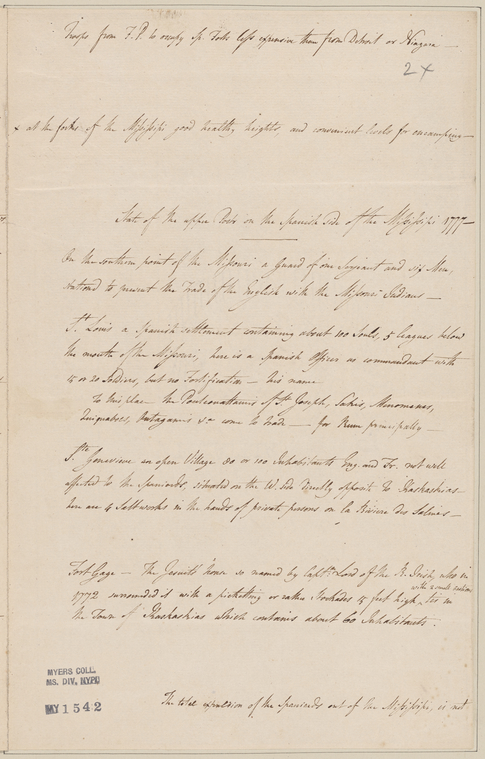 Troops from F. P. to occupy Sp. Forts less expensive than from Detroit or Niagara —
2 x
x at the forks of the Missisipi good healthy heights and convenient levels for encamping —
State of the upper Posts on the Spanish side of the Missisipi 1777 —
On the southern point of the Missouri a Guard of one Serjeant and six Men,
intend to prevent the Trade of the English with the Missouri Indians —
St. Louis a Spanish settlement containing about 100 Souls, 5 leagues below
the mouth of the Missouri, here is a Spanish Officer as commandant with
15 or 20 Soldiers, but no Fortification — his name
To this place the Pouteouattamis of St. Joseph, Sakis, Menomanas,
Outagamis &c come to trade — for Rum principally —
Ste. Genevieve an open Village 80 or 100 Inhabitants Eng. and Fr. not well
affected to the Spaniards, situated on the W. side directly opposite to Kaskaskias
here are 4 Saltworks in the hands of private persons on la Riviere des Salines —
Fort Gage — The Jesuits' house so named by Captn. Lord of the R. Irish, who in
with 2 small
1772 surrounded it with a picketting or rather Stockades 15 feet high, tis in
the Town of Kaskaskias which contains about 60 Inhabitants.
MYERS COLL.
MS. DIV. NYPL
MY 1542
The total expulsion of the Spaniards out of the Missisipi, is not